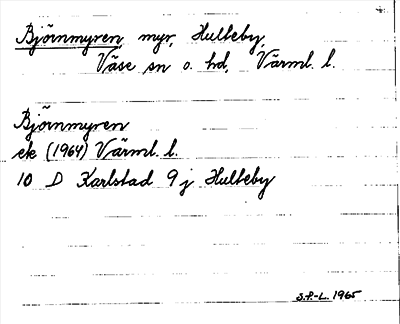 Björnmyren, myr, Hulteby,
Väse sn o. hd, Värml. l.
Björnmyren
ek (1964) Värml. l.
10 D Karlstad 9 j Hulteby
S.P.-L. 1965